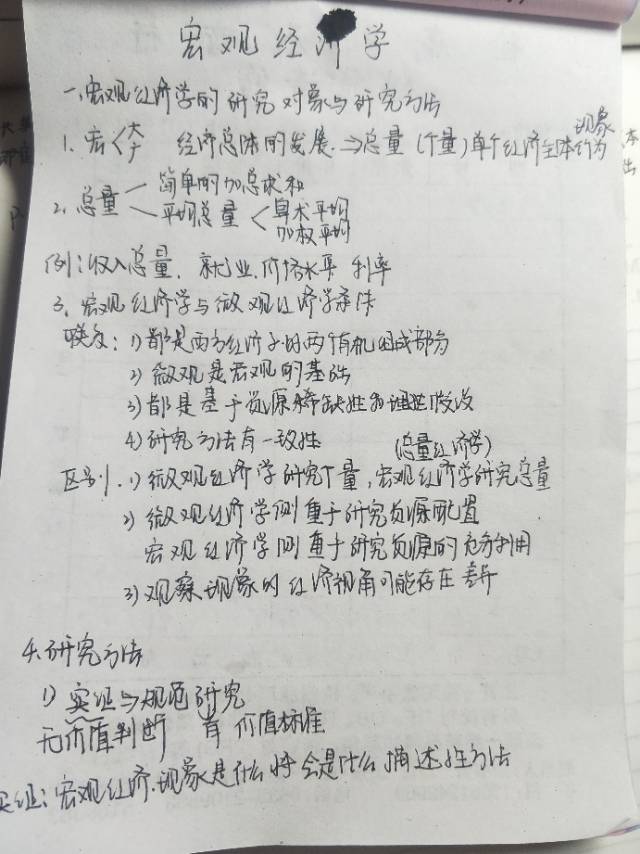 宏观经济学
一、宏观经济学的研究对象与研究方法
1. 宏 大 经济总体的发展 ⇒总量 (个量) 单个经济主体行为 现象
2. 总量 简单的加总求和
平均总量 算术平均
加权平均
例:收入总量、就业、价格水平 利率
3、宏观经济学与微观经济学关系
联系: 1) 都是西方经济学的两个有机组成部分
2) 微观是宏观的基础
3) 都是基于资源稀缺性
4) 研究方法有一致性
(总量经济学)
区别. 1) 微观经济学研究个量,宏观经济学研究总量
2) 微观经济学侧重于研究资源配置
宏观经济学则重于研究资源的充分利用
3) 观察现象的经济视角可能存在差异
4.研究方法
1) 实证与规范研究
无价值判断 有价值标准
实证:宏观经济现象是什么将会是什么描述性方法